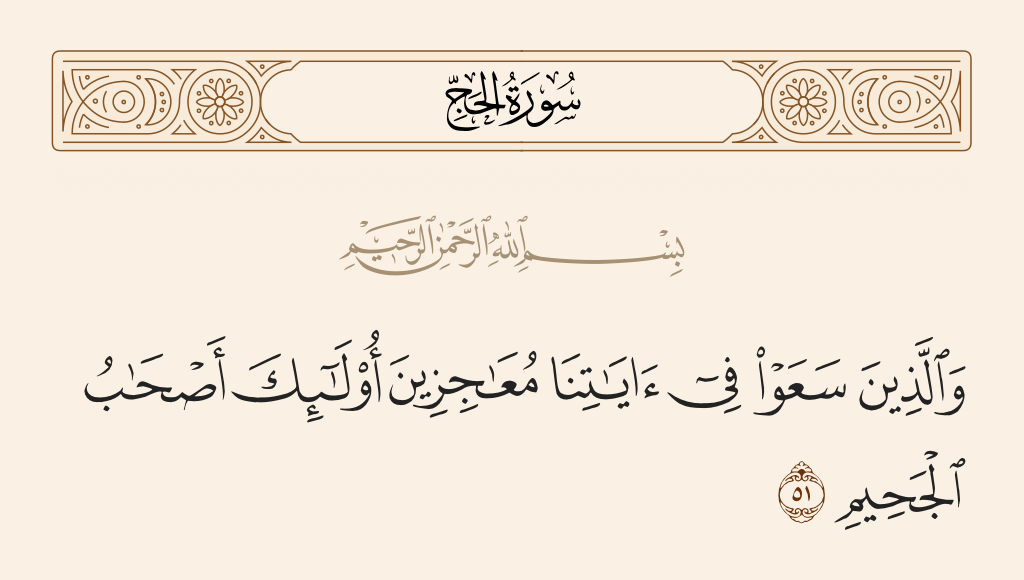 سُورَةُ الحَجِّ
بِسْمِ ٱللَّهِ ٱلرَّحْمَٰنِ ٱلرَّحِيمِ
وَٱلَّذِينَ سَعَوْا۟ فِىٓ ءَايَٰتِنَا مُعَٰجِزِينَ أُو۟لَٰٓئِكَ أَصْحَٰبُ
ٱلْجَحِيمِ ٥١